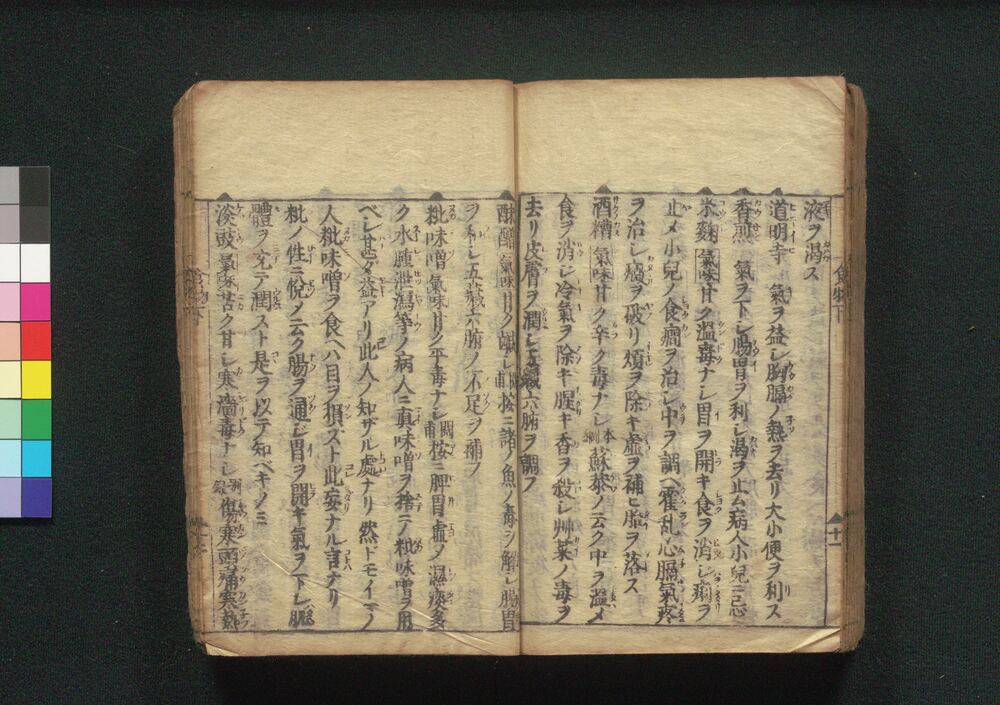 液ヲ渇ス
道明寺 氣ヲ益シ胸膈ノ熱ヲ去リ大小便ヲ利ス
香煎 氣ヲ下シ腸胃ヲ利シ渇ヲ止ム病人小兒ニ忌
米麹 氣味甘ク温毒ナシ胃ヲ開キ食ヲ消シ痢ヲ
止メ小兒ノ食癇ヲ治シ中ヲ調ヘ霍乱心膈氣疼
ヲ治シ癥ヲ破リ煩ヲ除キ虚ヲ補ヒ胎ヲ落ス
酒糟 氣味甘ク辛ク毒ナシ 本綱 蘇恭ノ云ク中ヲ温メ
食ヲ消シ冷氣ヲ除キ腥キ香ヲ殺シ艸菜ノ毒ヲ
去リ皮膚ヲ潤シ五臓六腑ヲ調フ
氣味甘ク鹹シ 國甫按ニ諸ノ魚ノ毒ヲ解シ腸胃
ヲ利シ五藏六腑ノ不足ヲ補フ
粃味噌 氣味甘ク平毒ナシ 國甫按ニ脾胃虚ノ濕痰多
ク水腫泄瀉等ノ病人ニ真味噌ヲ捨テ粃味噌ヲ用
ベシ甚タ益アリ此人ノ知ザル處ナリ然ドモイマノ
人粃味噌ヲ食ヘハ目ヲ損スト此妄ナル言ナリ
粃ノ性ニ悅ノ云ク腸ヲ通シ胃ヲ開キ氣ヲ下シ肌
體ヲ充テ潤スト是ヲ以テ知ベキノミ
淡豉 氣味苦ク甘シ寒濇毒ナシ 別錄 傷寒頭痛寒熱
食物下
十一